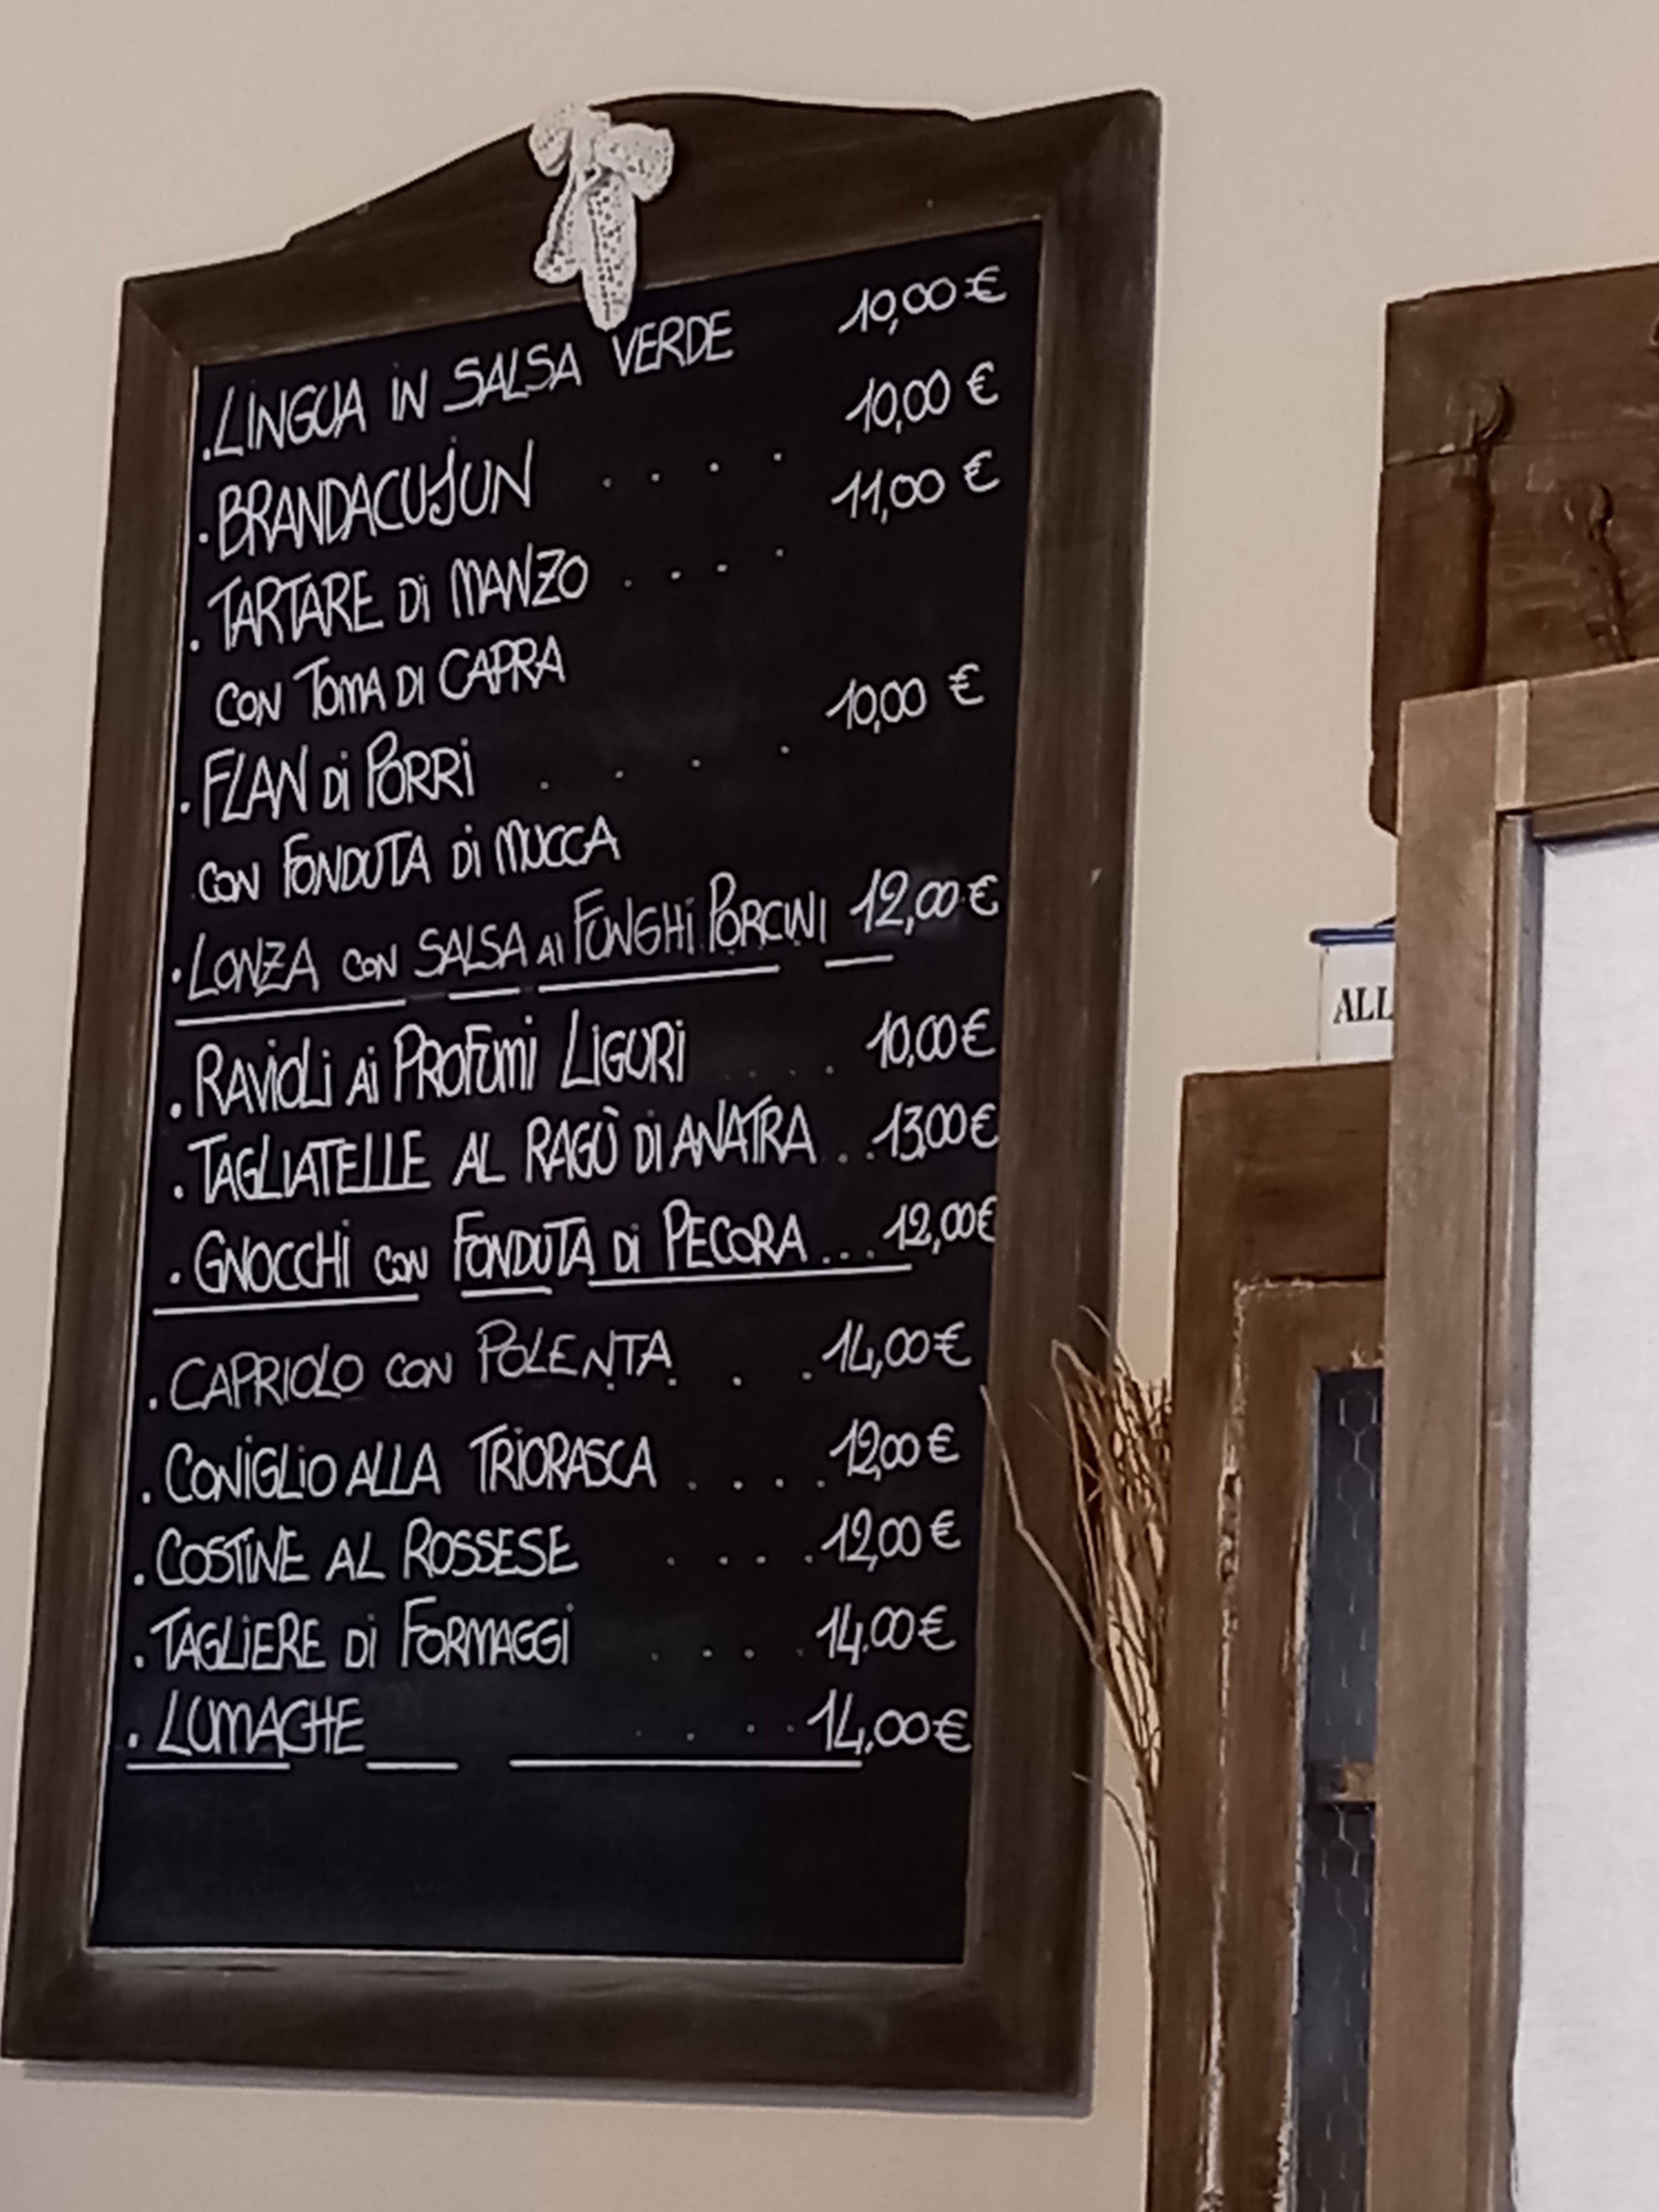 .LINGUA iN SALSA VERDE 10,00 €
.BRANDACUJUN .... 10,00 €
.TARTARE Di MANZO .... 11,00 €
CON TOMA DI CAPRA
.FLAN Di PORRi .... 10,00 €
CON FONDUTA Di MUCCA
.LONZA CON SALSA AI FUNGHi PORCINI 12,00 €
.RAVIOLi Ai PROFUMi LIGURi .... 10,00 €
.TAGLIATELLE AL RAGÙ Di ANATRA ... 13,00 €
.GNOCCHI CON FONDUTA Di PECORA ... 12,00 €
.CAPRIOLO CON POLENTA .... 14,00 €
.CONIGLIO ALLA TRIORASCA .... 12,00 €
.COSTINE AL ROSSESE .... 12,00 €
.TAGLIERE Di FORMAGGI .... 14.00 €
.LUMACHE .... 14,00 €
ALL